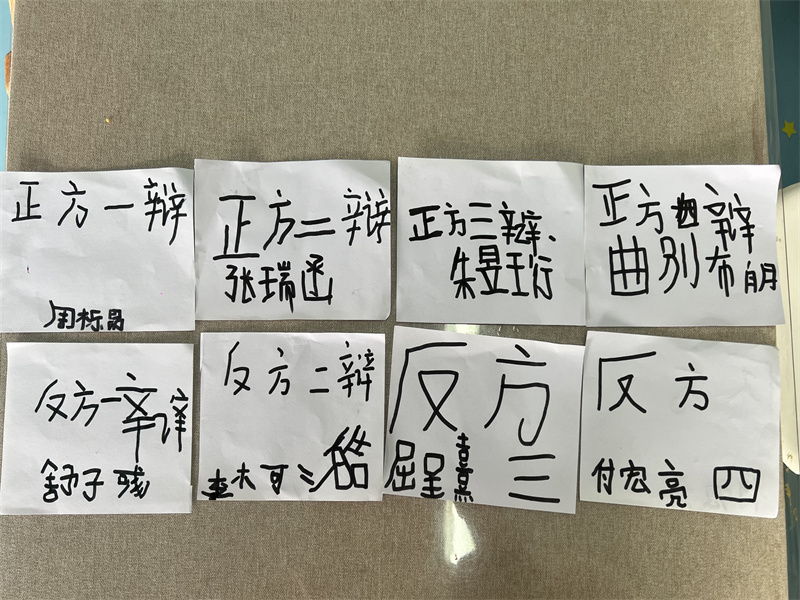 正方一辩
周标昌
正方二辩
张瑞函
正方三辩、
朱昱珩
正方四辩
曲别布
反方一辩
舒子残
反方二辩
李木可
反方
屈呈熹 三
反方
付宏亮 四